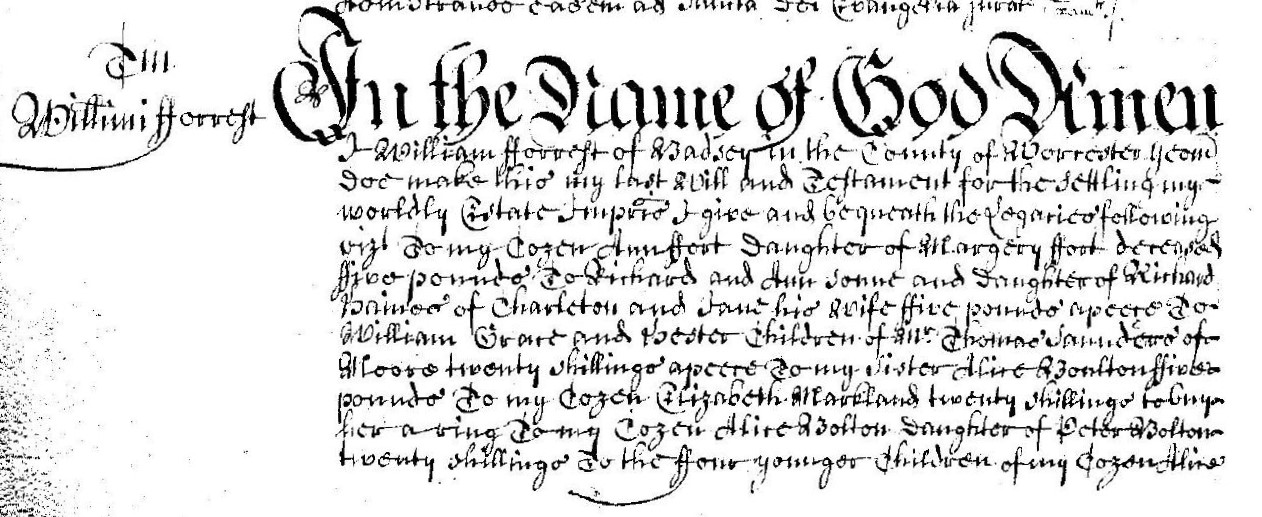 eadem ad Sancta Dei Evangelia jurat
Tm
Willimi fforrest
In the Name of God Amen
I William fforrest of Badsey in the County of Worcester yeom
doe make this my last Will and Testament for the settling my
worldly Estate Impris I give and bequeath the Legacies following
vizt To my Cozen Ann ffort daughter of Margery ffort deceased
ffive pounds To Richard and Ann sonne and daughter of Richard
Haines of Charleton and Jane his wife ffive pounds apeece To
William Grace and Hester Children of Mr. Thomas Saunders of
Moore twenty shillings apeece To my Sister Alice Boulton ffive
pounds To my Cozen Elizabeth Markland twenty shillings to buy
her a ring To my Cozen Alice Bolton daughter of Peter Bolton
twenty shillings To the ffour younger Children of my Cozen Alice